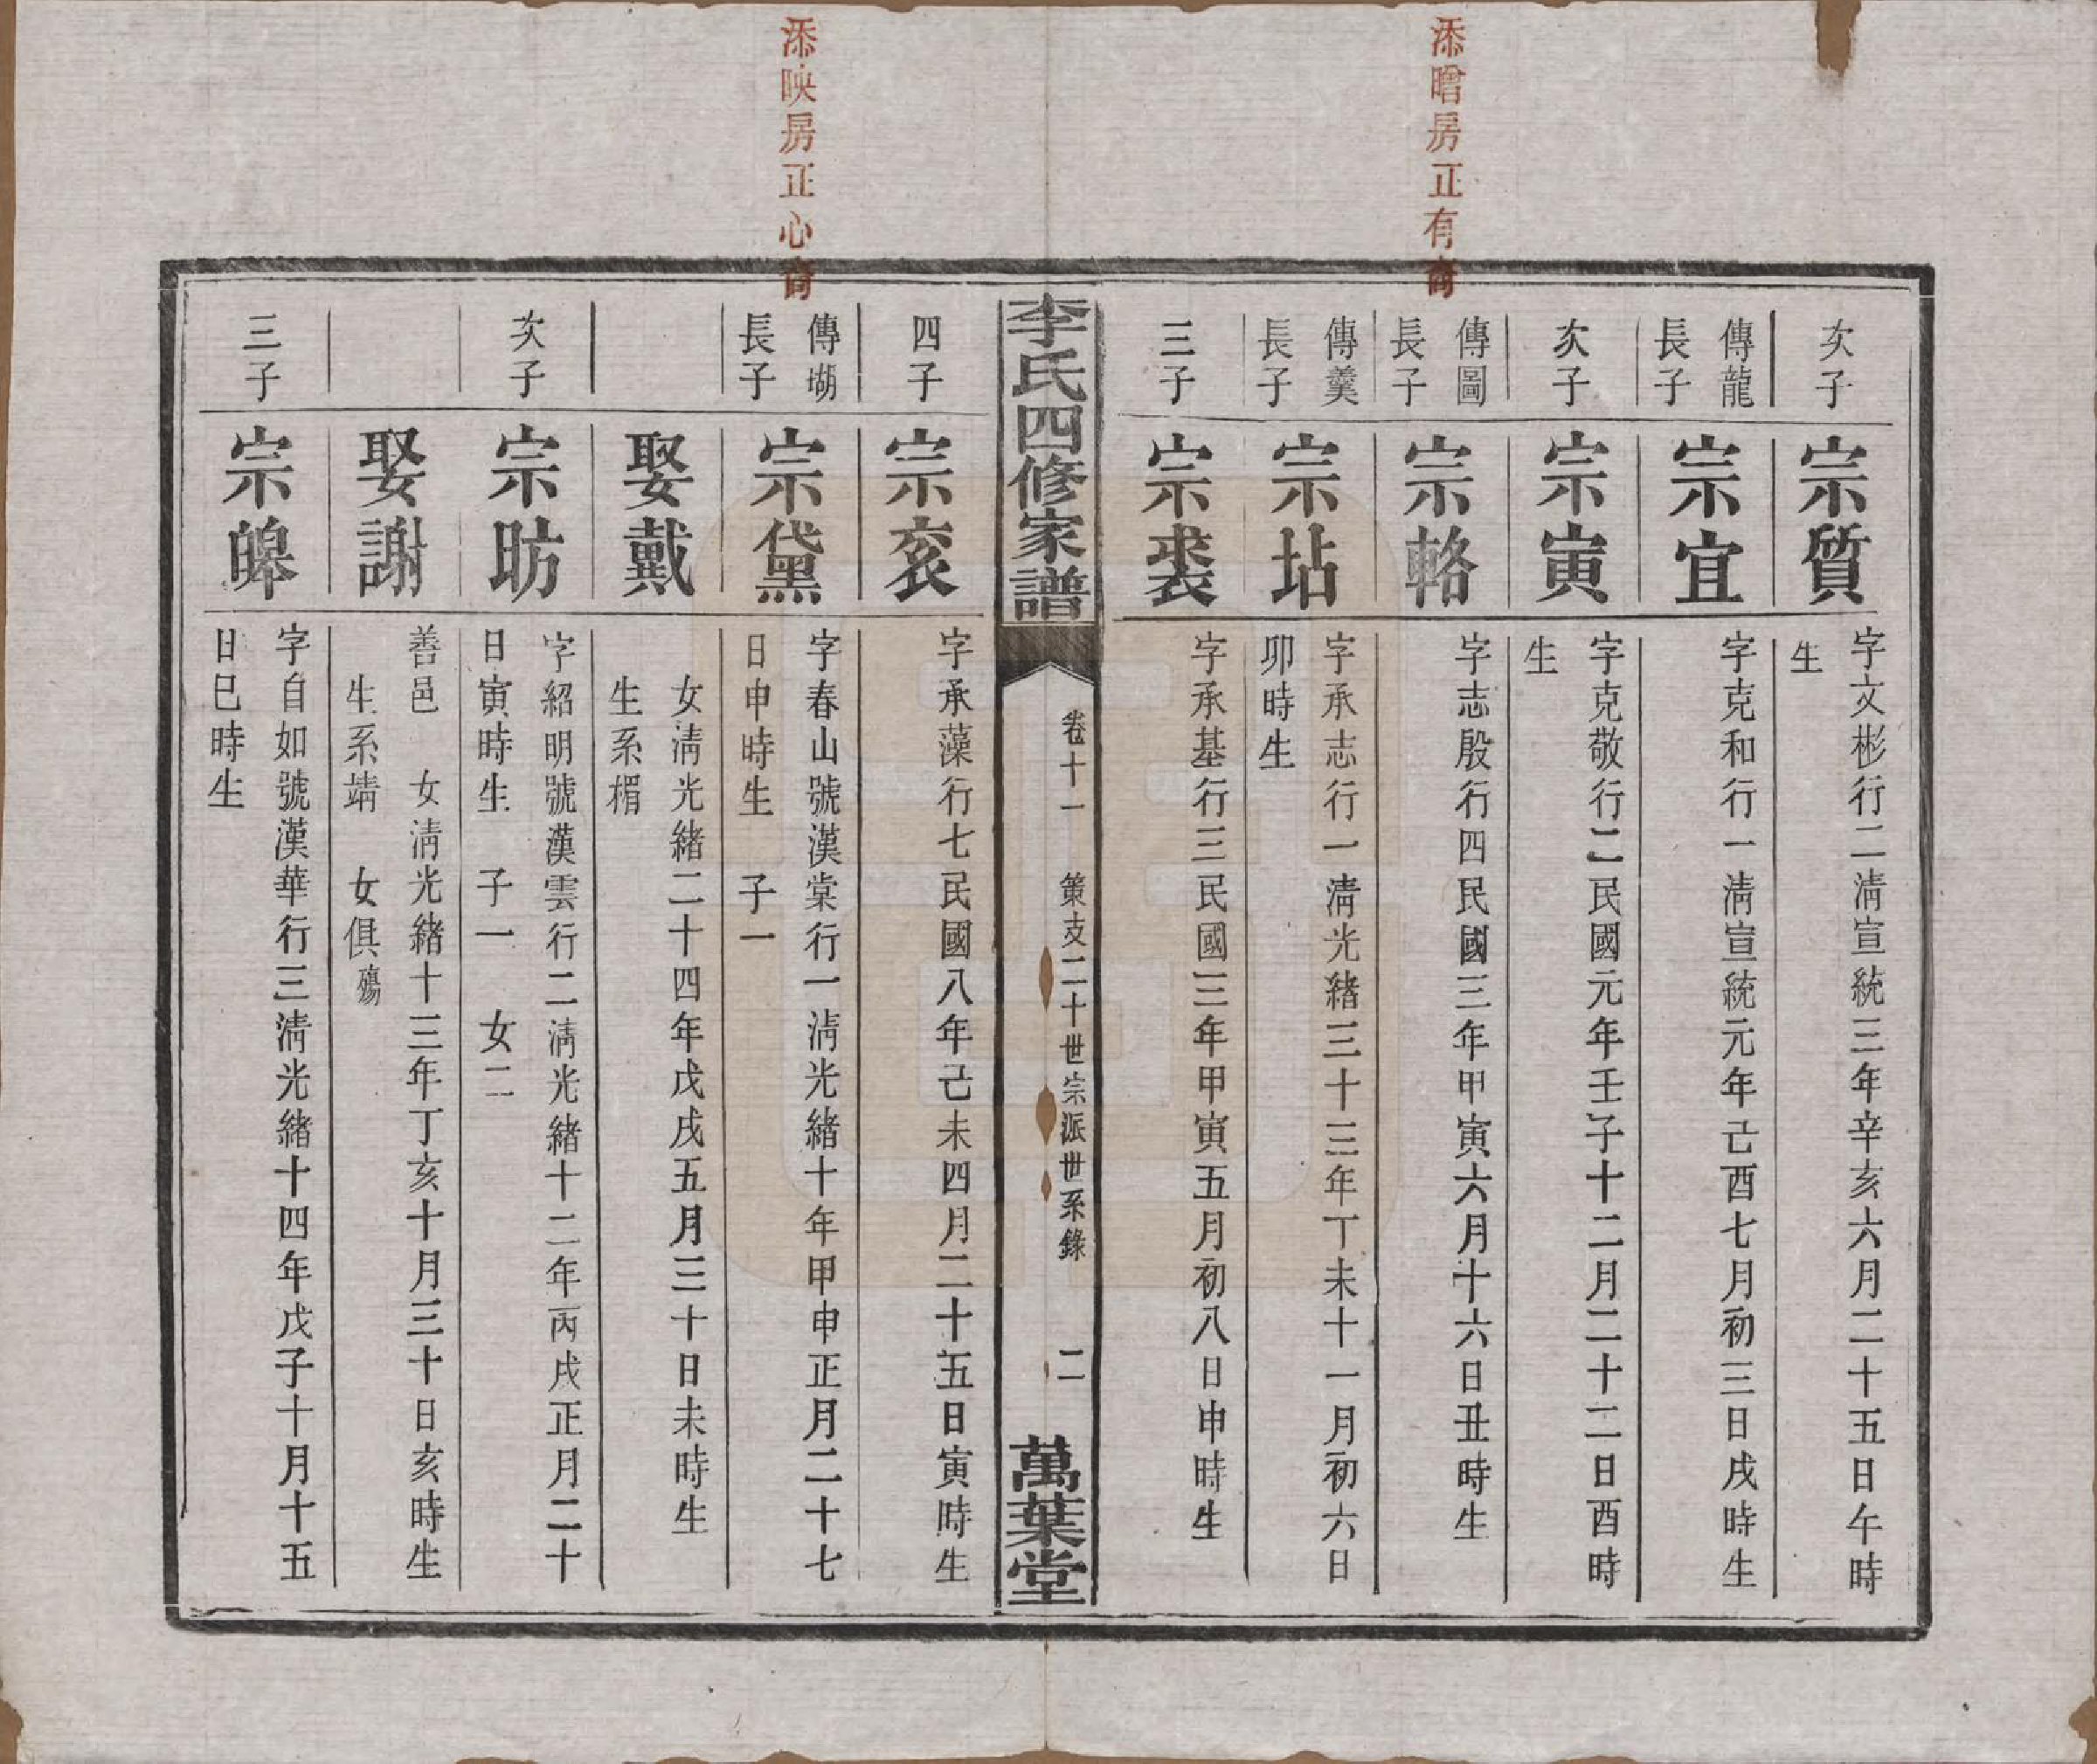 添暟房正有裔
次子
宗質
字文彬行二淸宣統三年辛亥六月二十五日午時
生
傳龍
長子
宗宜
字克和行一淸宣統元年己酉七月初三日戌時生
次子
宗寅
字克敬行二民國元年壬子十二月二十二日酉時
生
傳圖
長子
宗輅
字志殷行四民國三年甲寅六月十六日丑時生
傳羹
長子
宗坫
字承志行一淸光緒三十三年丁未十一月初六日
卯時生
三子
宗裘
字承基行三民國三年甲寅五月初八日申時生
李氏四修家譜
卷十一 策支二十世宗派世系錄 二
萬葉堂
添映房正心裔
四子
宗袞
字承藻行七民國八年己未四月二十五日寅時生
傳塨
長子
宗黛
字春山號漢棠行一淸光緒十年甲申正月二十七
日申時生 子一
娶戴
女淸光緒二十四年戊戌五月三十日未時生
生系楣
次子
宗昉
字紹明號漢雲行二淸光緒十二年丙戌正月二十
日寅時生 子一 女二
娶謝
善邑 女淸光緒十三年丁亥十月三十日亥時生
生系靖 女俱殤
三子
宗皞
字自如號漢華行三淸光緒十四年戊子十月十五
日巳時生